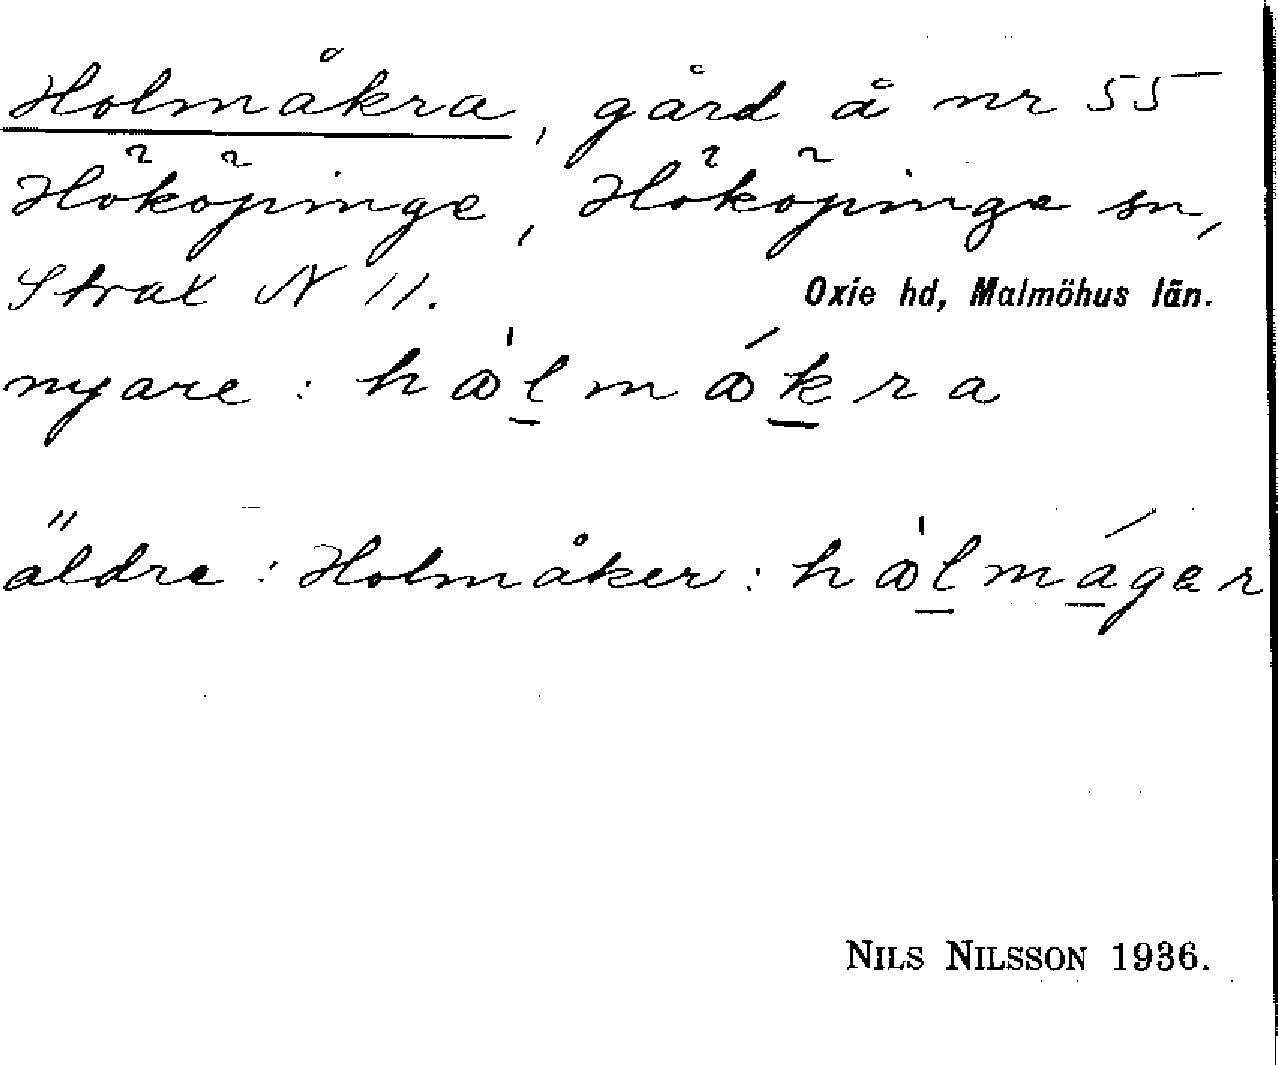 Holmåkra, gård å nr 55
Hököpinge, Hököpinge sn,
Strax N 11. Oxie hd, Malmöhus län.
nyare: hòlmókra
äldre: Holmåker: hòlmáger
NILS NILSSON 1936.